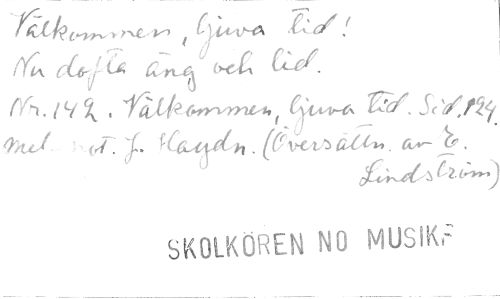 Välkommen, ljuva tid!
Nu dofta äng och lid.
Nr. 142. Välkommen, ljuva tid. Sid. 124.
Mel. not. J. Haydn. (Översättn. av E.
Lindström)
SKOLKÖREN NO MUSIK